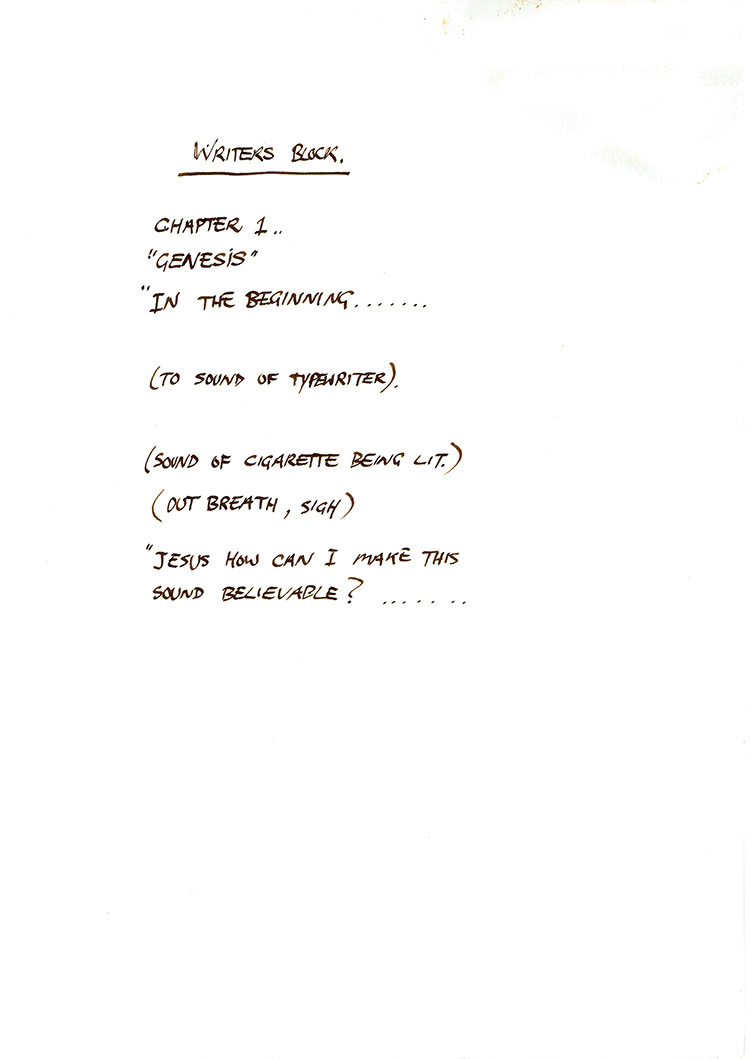 WRITERS BLOCK.
CHAPTER 1..
"GENESIS"
"IN THE BEGINNING.......
(TO SOUND OF TYPEWRITER).
(SOUND OF CIGARETTE BEING LIT.)
(OUT BREATH, SIGH)
"JESUS HOW CAN I MAKE THIS
SOUND BELIEVABLE? .......